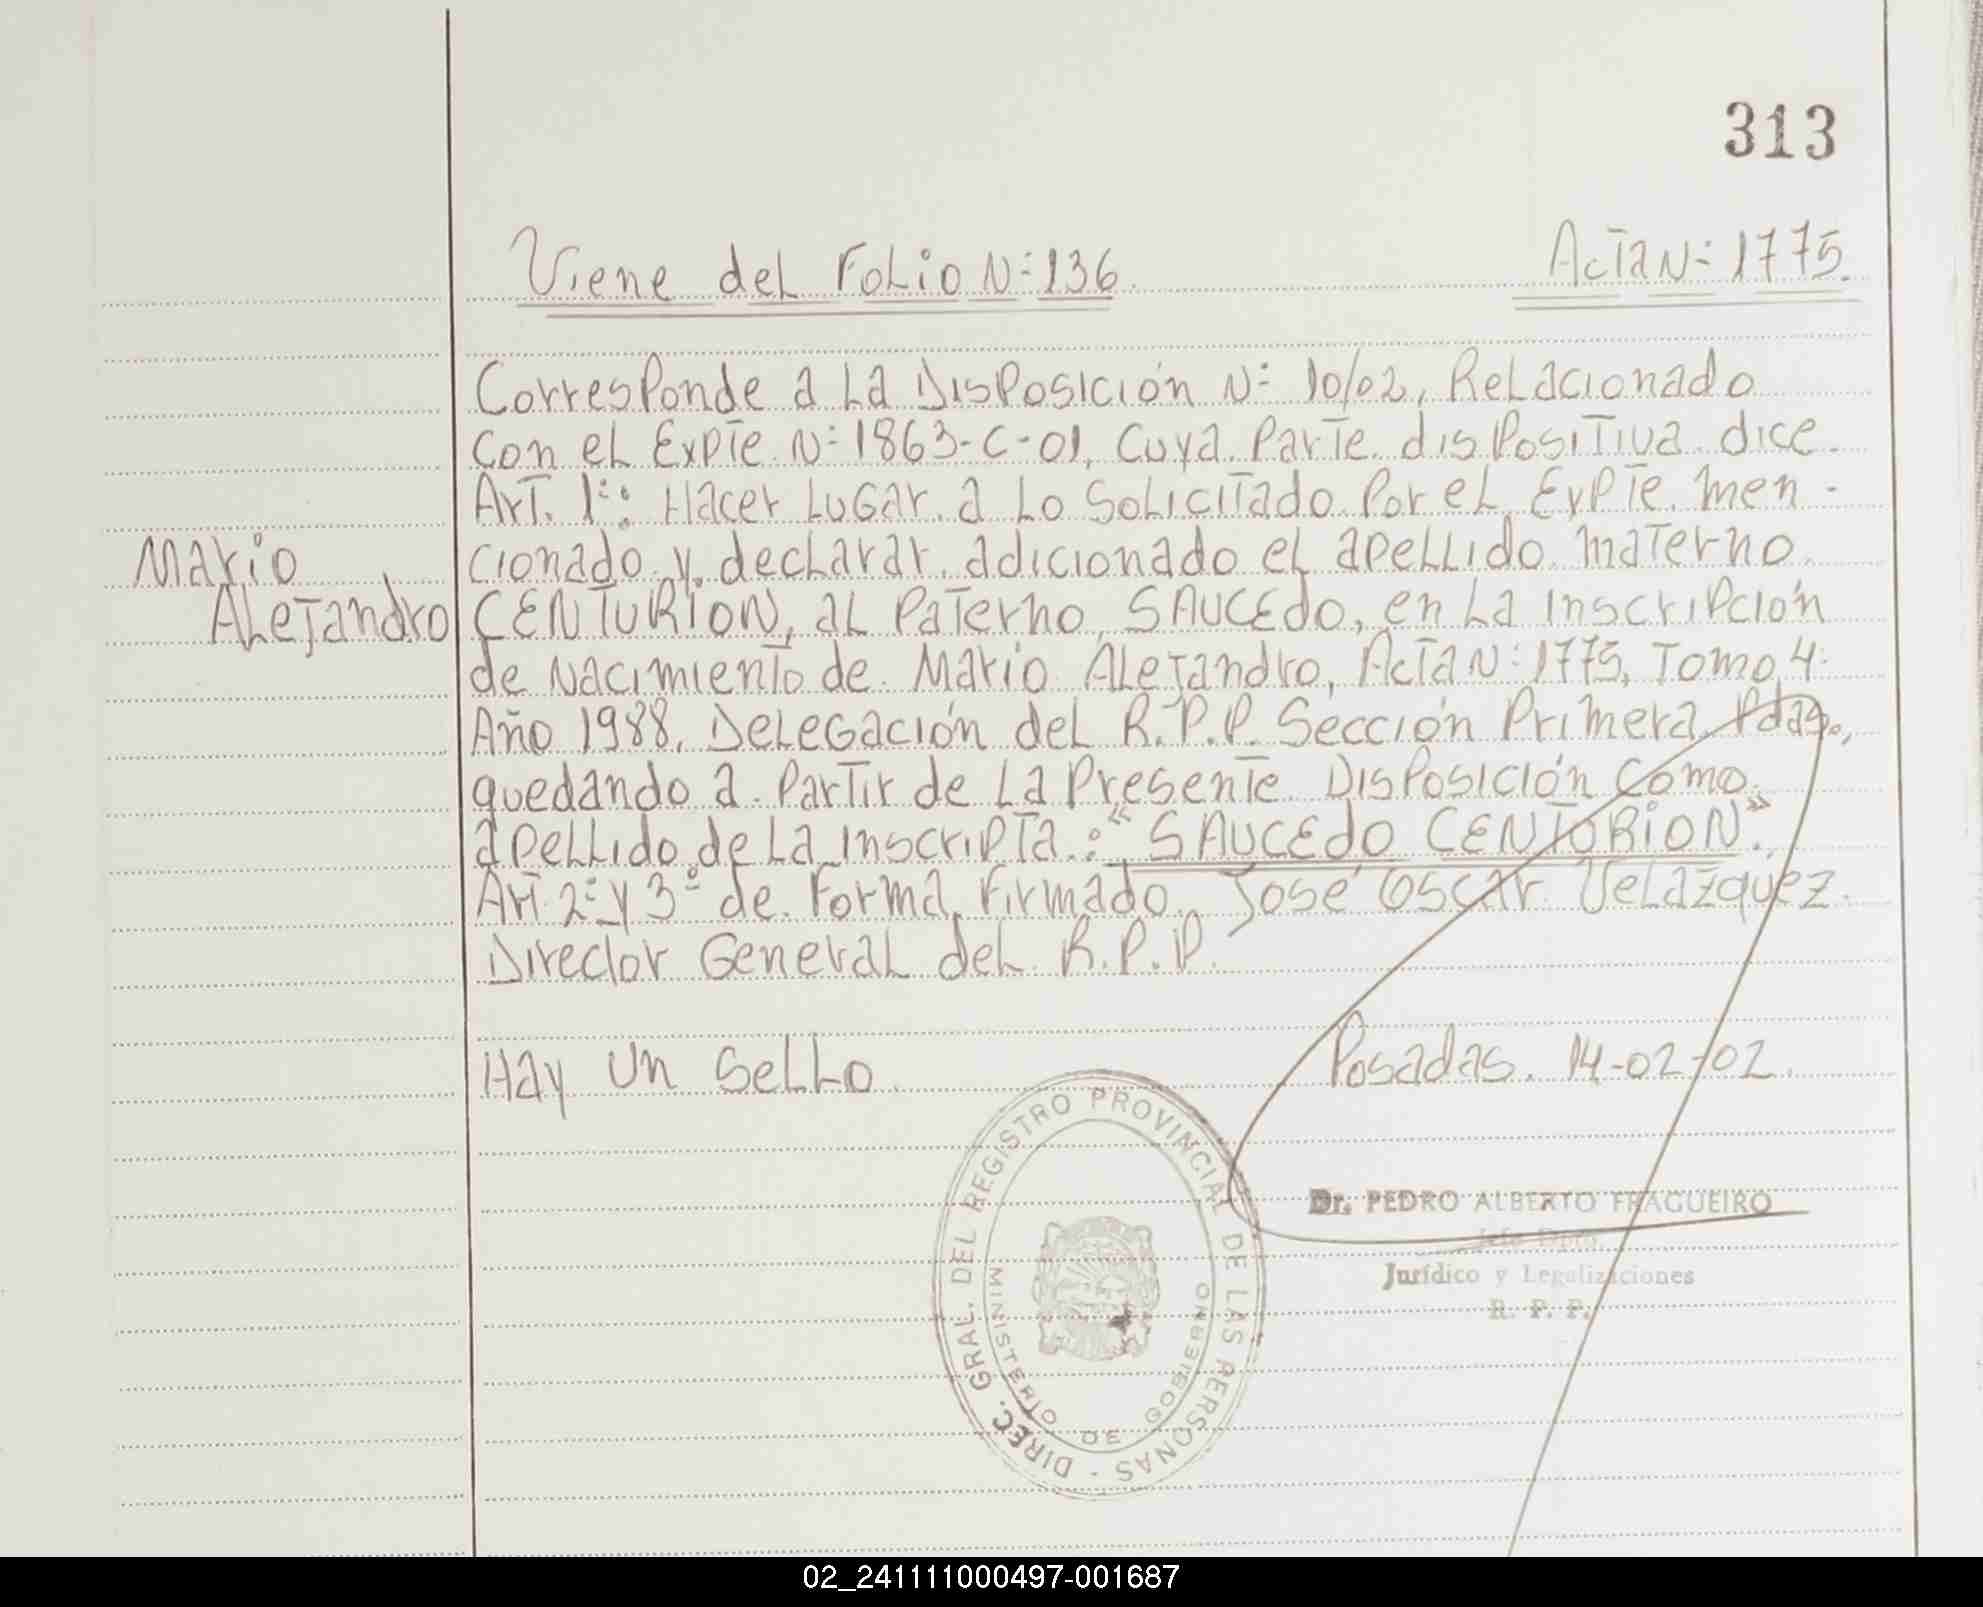 313
Viene del Folio N: 136.
Acta N: 1775.
Corresponde a la Disposición N: 10/02, Relacionado
con el Expte. N: 1863-C-01, cuya parte dispositiva dice.
Art. 1:: Hacer lugar a lo solicitado por el Expte. men-
cionado y declarar adicionado el apellido materno
Mario
Alejandro
CENTURION, al paterno SAUCEDO, en la inscripción
de nacimiento de Mario Alejandro, Acta N: 1775, Tomo 4:
Año 1988, Delegación del R.P.P. Sección Primera Pdas.,
quedando a partir de la presente Disposición como
apellido de la inscripta: "SAUCEDO CENTURION".
Art. 2: y 3º de forma, firmado José Oscar Velazquez.
Director General del R.P.P.
Hay un sello.
Posadas. 14-02-02.
DIREC. GRAL. DEL REGISTRO PROVINCIAL DE LAS PERSONAS -
MINISTERIO DE GOBIERNO
Dr. PEDRO ALBERTO FRAGUEIRO
Jefe Dpto.
Jurídico y Legalizaciones
R. P. P.
02_241111000497-001687